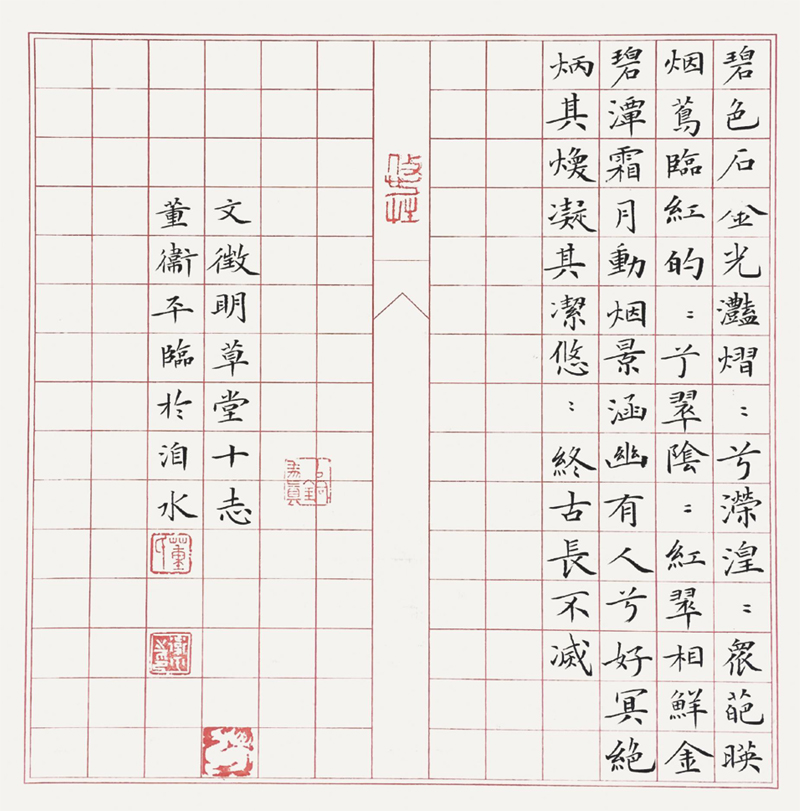 碧色石金光灩熠：兮濚湟：眾葩暎
烟蔦臨紅的：兮翠陰：紅翠相鮮金
碧潭霜月動烟景涵幽有人兮好冥絕
炳其煥凝其潔悠：終古長不滅
文徵明草堂十志
董衞平臨於洹水
董氏